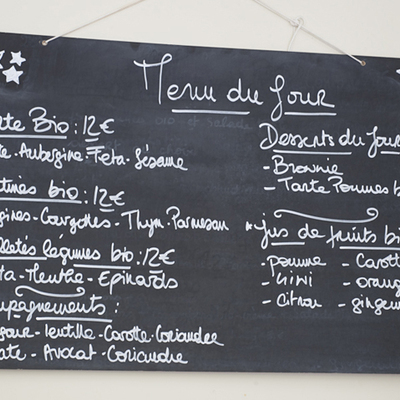 Menu du Jour
rte Bio : 12€
te-Aubergine-Feta-Sésame
tines bio : 12€
gines-Courgettes-Thym-Parmesan
lletés légumes bio : 12€
ta-Menthe-Epinards
mpagnements :
gour-lentille-Carotte-Coriandre
ate-Avocat-Coriandre
Desserts du Jour
- Brownie
- Tarte Pommes b
*jus de fruits bi
pomme - Carott
- Kiwi - orang
- Citron - gingem